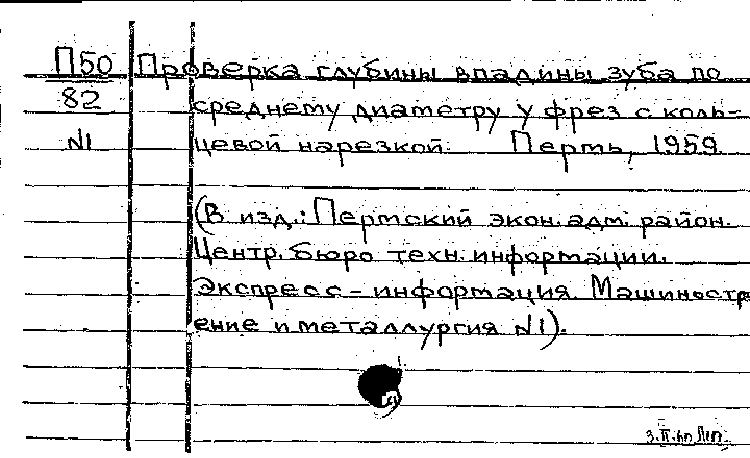 П50 Проверка глубины впадины зуба по
82 среднему диаметру у фрез с коль-
N1 цевой нарезкой. Пермь, 1959.
(В изд.: Пермский экон. адм. район.
Центр. бюро техн. информации.
Экспресс-информация. Машиностр
ение и металлургия N1).